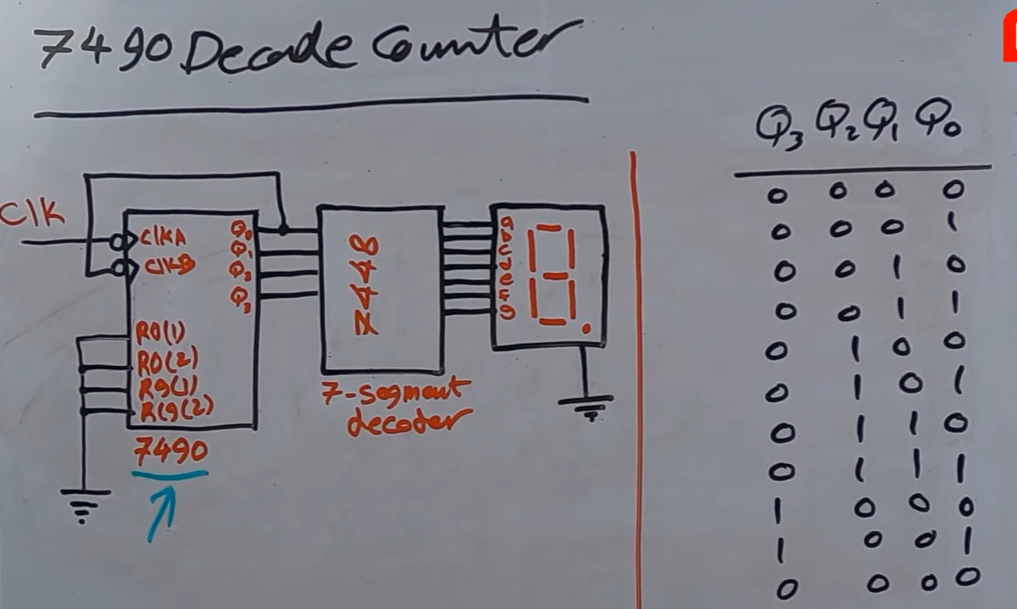 7490 Decade Counter
Clk
CLKA
CLKB
R0(1)
R0(2)
R9(1)
R9(2)
Q0
Q1
Q2
Q3
7490
7448
7-segment
decoder
a
b
c
d
e
f
g
Q3 Q2 Q1 Q0
0 0 0 0
0 0 0 1
0 0 1 0
0 0 1 1
0 1 0 0
0 1 0 1
0 1 1 0
0 1 1 1
1 0 0 0
1 0 0 1
0 0 0 0